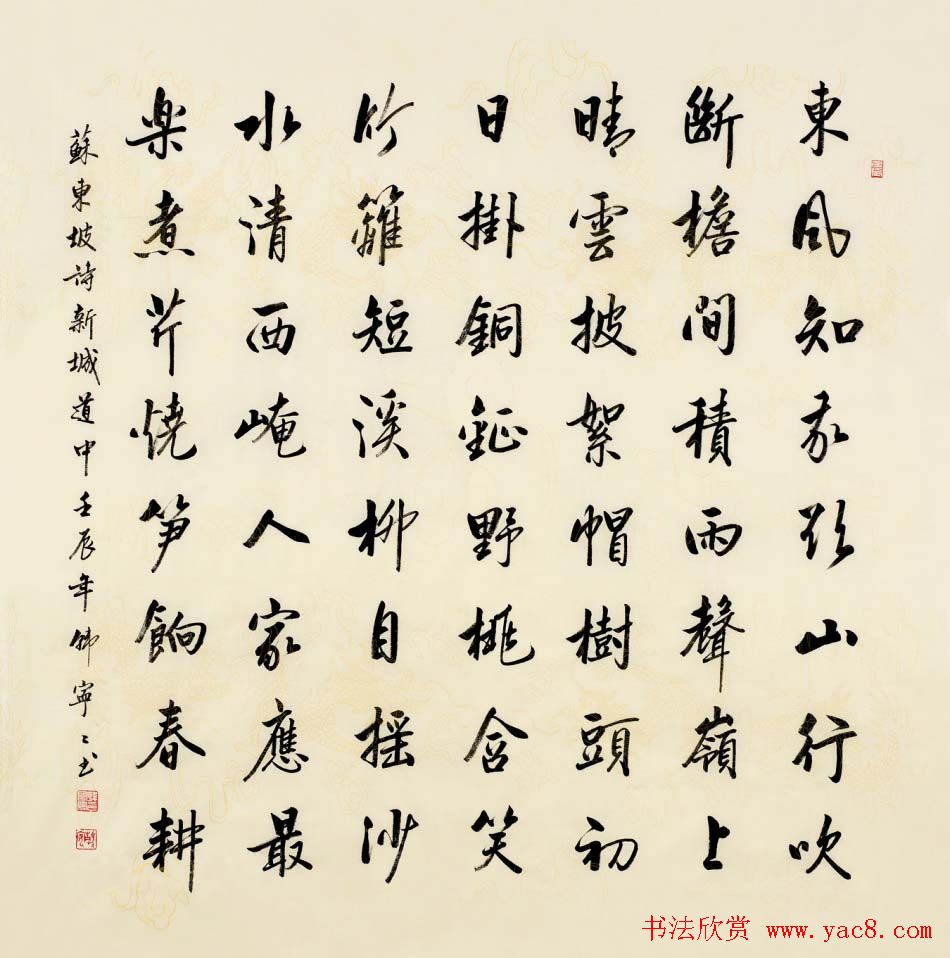 東風知我欲山行吹
斷檐間積雨聲嶺上
晴雲披絮帽樹頭初
日掛銅鉦野桃含笑
竹籬短溪柳自摇沙
水清西崦人家應最
楽煮芹燒笋餉春耕
蘇東坡詩新城道中壬辰年寧〻书
书法欣赏 www.yac8.com